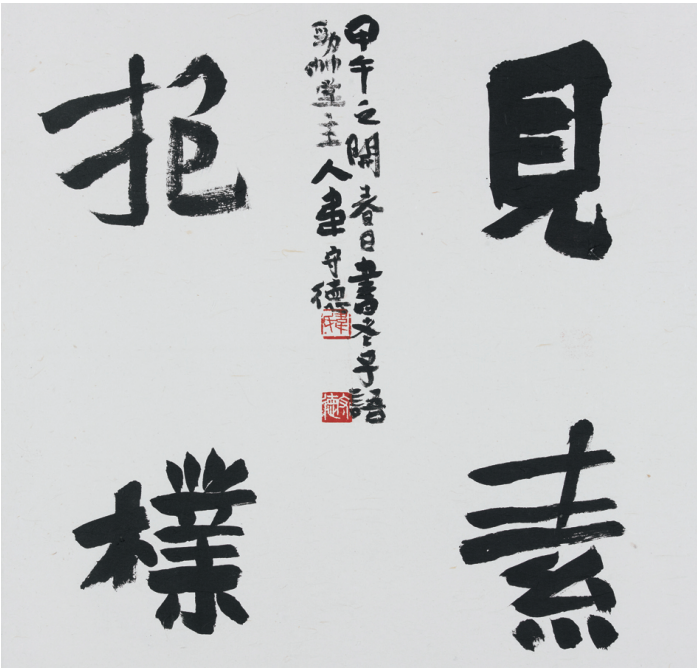 見素
抱樸
甲午之開春日書老子語
勁艸堂主人韋守德
守德